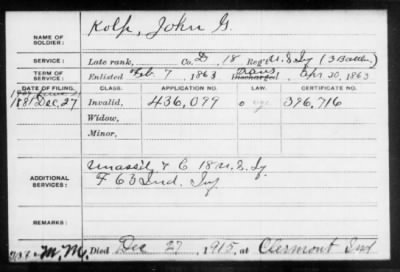 NAME OF SOLDIER: Kolp, John G.
SERVICE: Late rank, Co. D, 18 Reg't U.S. Iy (3 Battn.)
TERM OF SERVICE: Enlisted Feb. 7, 1863 Trans Discharged Apr. 20, 1863
DATE OF FILING. CLASS. APPLICATION NO. LAW. CERTIFICATE NO.
1881 Dec. 27 Invalid, 436,099 396,716
Widow,
Minor,
ADDITIONAL SERVICES: Unass'd & C 18 U.S. Iy.
F 63 Ind. Iy
REMARKS:
M.M. Died Dec 27, 1915, at Clermont Ind